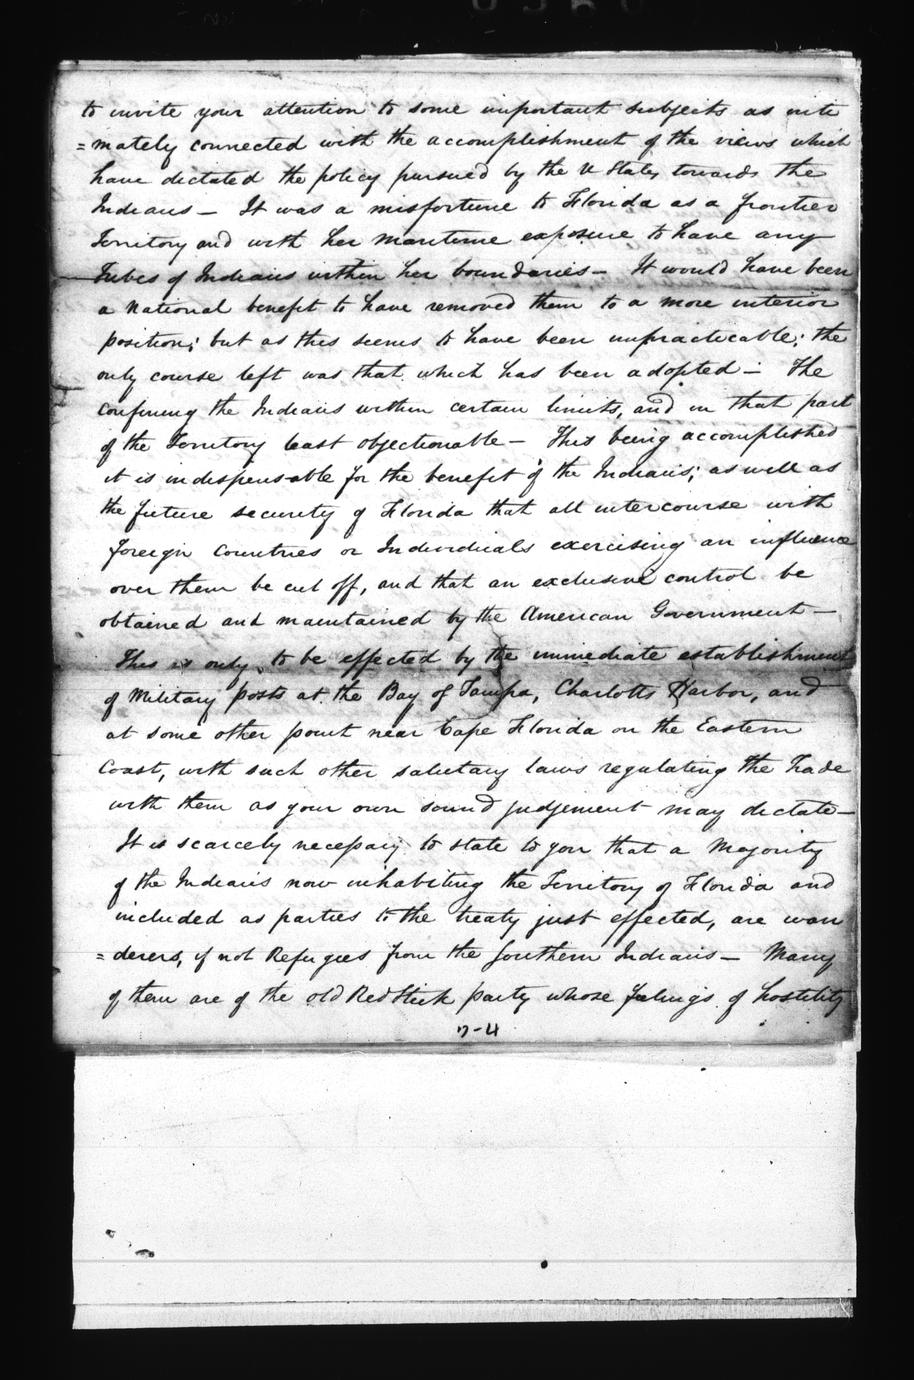 to invite your attention to some important subjects as inti
=mately connected with the accomplishment of the views which
have dictated the policy pursued by the U States towards the
Indians — It was a misfortune to Florida as a frontier
Territory and with her maritime exposure to have any
Tribes of Indians within her boundaries — It would have been
a national benefit to have removed them to a more interior
position; but as this seems to have been impracticable; the
only course left was that which has been adopted — The
confining the Indians within certain limits, and in that part
of the Territory least objectionable — This being accomplished
it is indispensable for the benefit of the Indians; as well as
the future security of Florida that all intercourse with
foreign Countries or Individuals exercising an influence
over them be cut off, and that an exclusive control be
obtained and maintained by the American Government —
This is only to be effected by the immediate establishment
of Military posts at the Bay of Tampa, Charlotts Harbor, and
at some other point near Cape Florida on the Eastern
Coast, with such other salutary laws regulating the Trade
with them as your own sound judgement may dictate —
It is scarcely necessary to state to you that a Majority
of the Indians now inhabiting the Territory of Florida and
included as parties to the treaty just effected, are wan
=derers, if not Refugees from the Southern Indians — Many
of them are of the old Red Stick party whose feelings of hostility
7-4